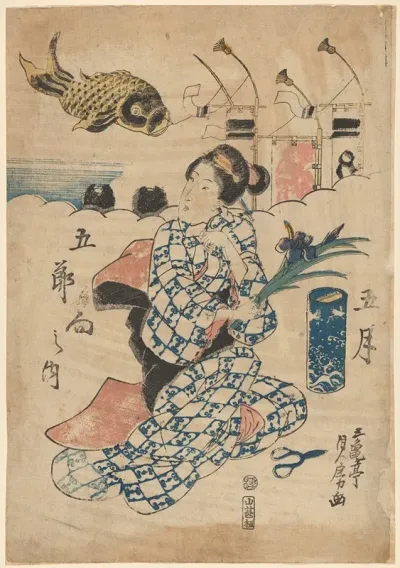 五節句之内
五月
五亀亭
貞房画